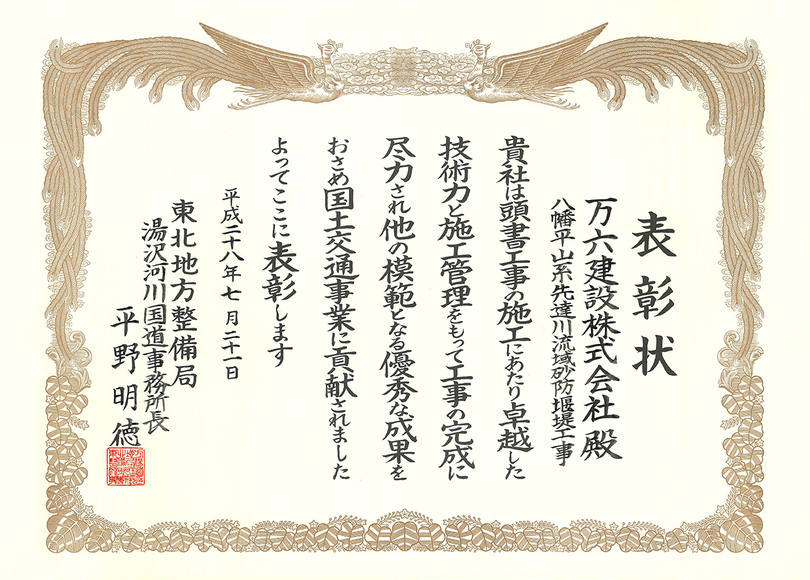 表彰状
万六建設株式会社殿
八幡平山系先達川流域砂防堰堤工事
貴社は頭書工事の施工にあたり卓越した
技術力と施工管理をもって工事の完成に
尽力され他の模範となる優秀な成果を
おさめ国土交通事業に貢献されました
よってここに表彰します
平成二十八年七月二十一日
東北地方整備局
湯沢河川国道事務所長
平野明徳